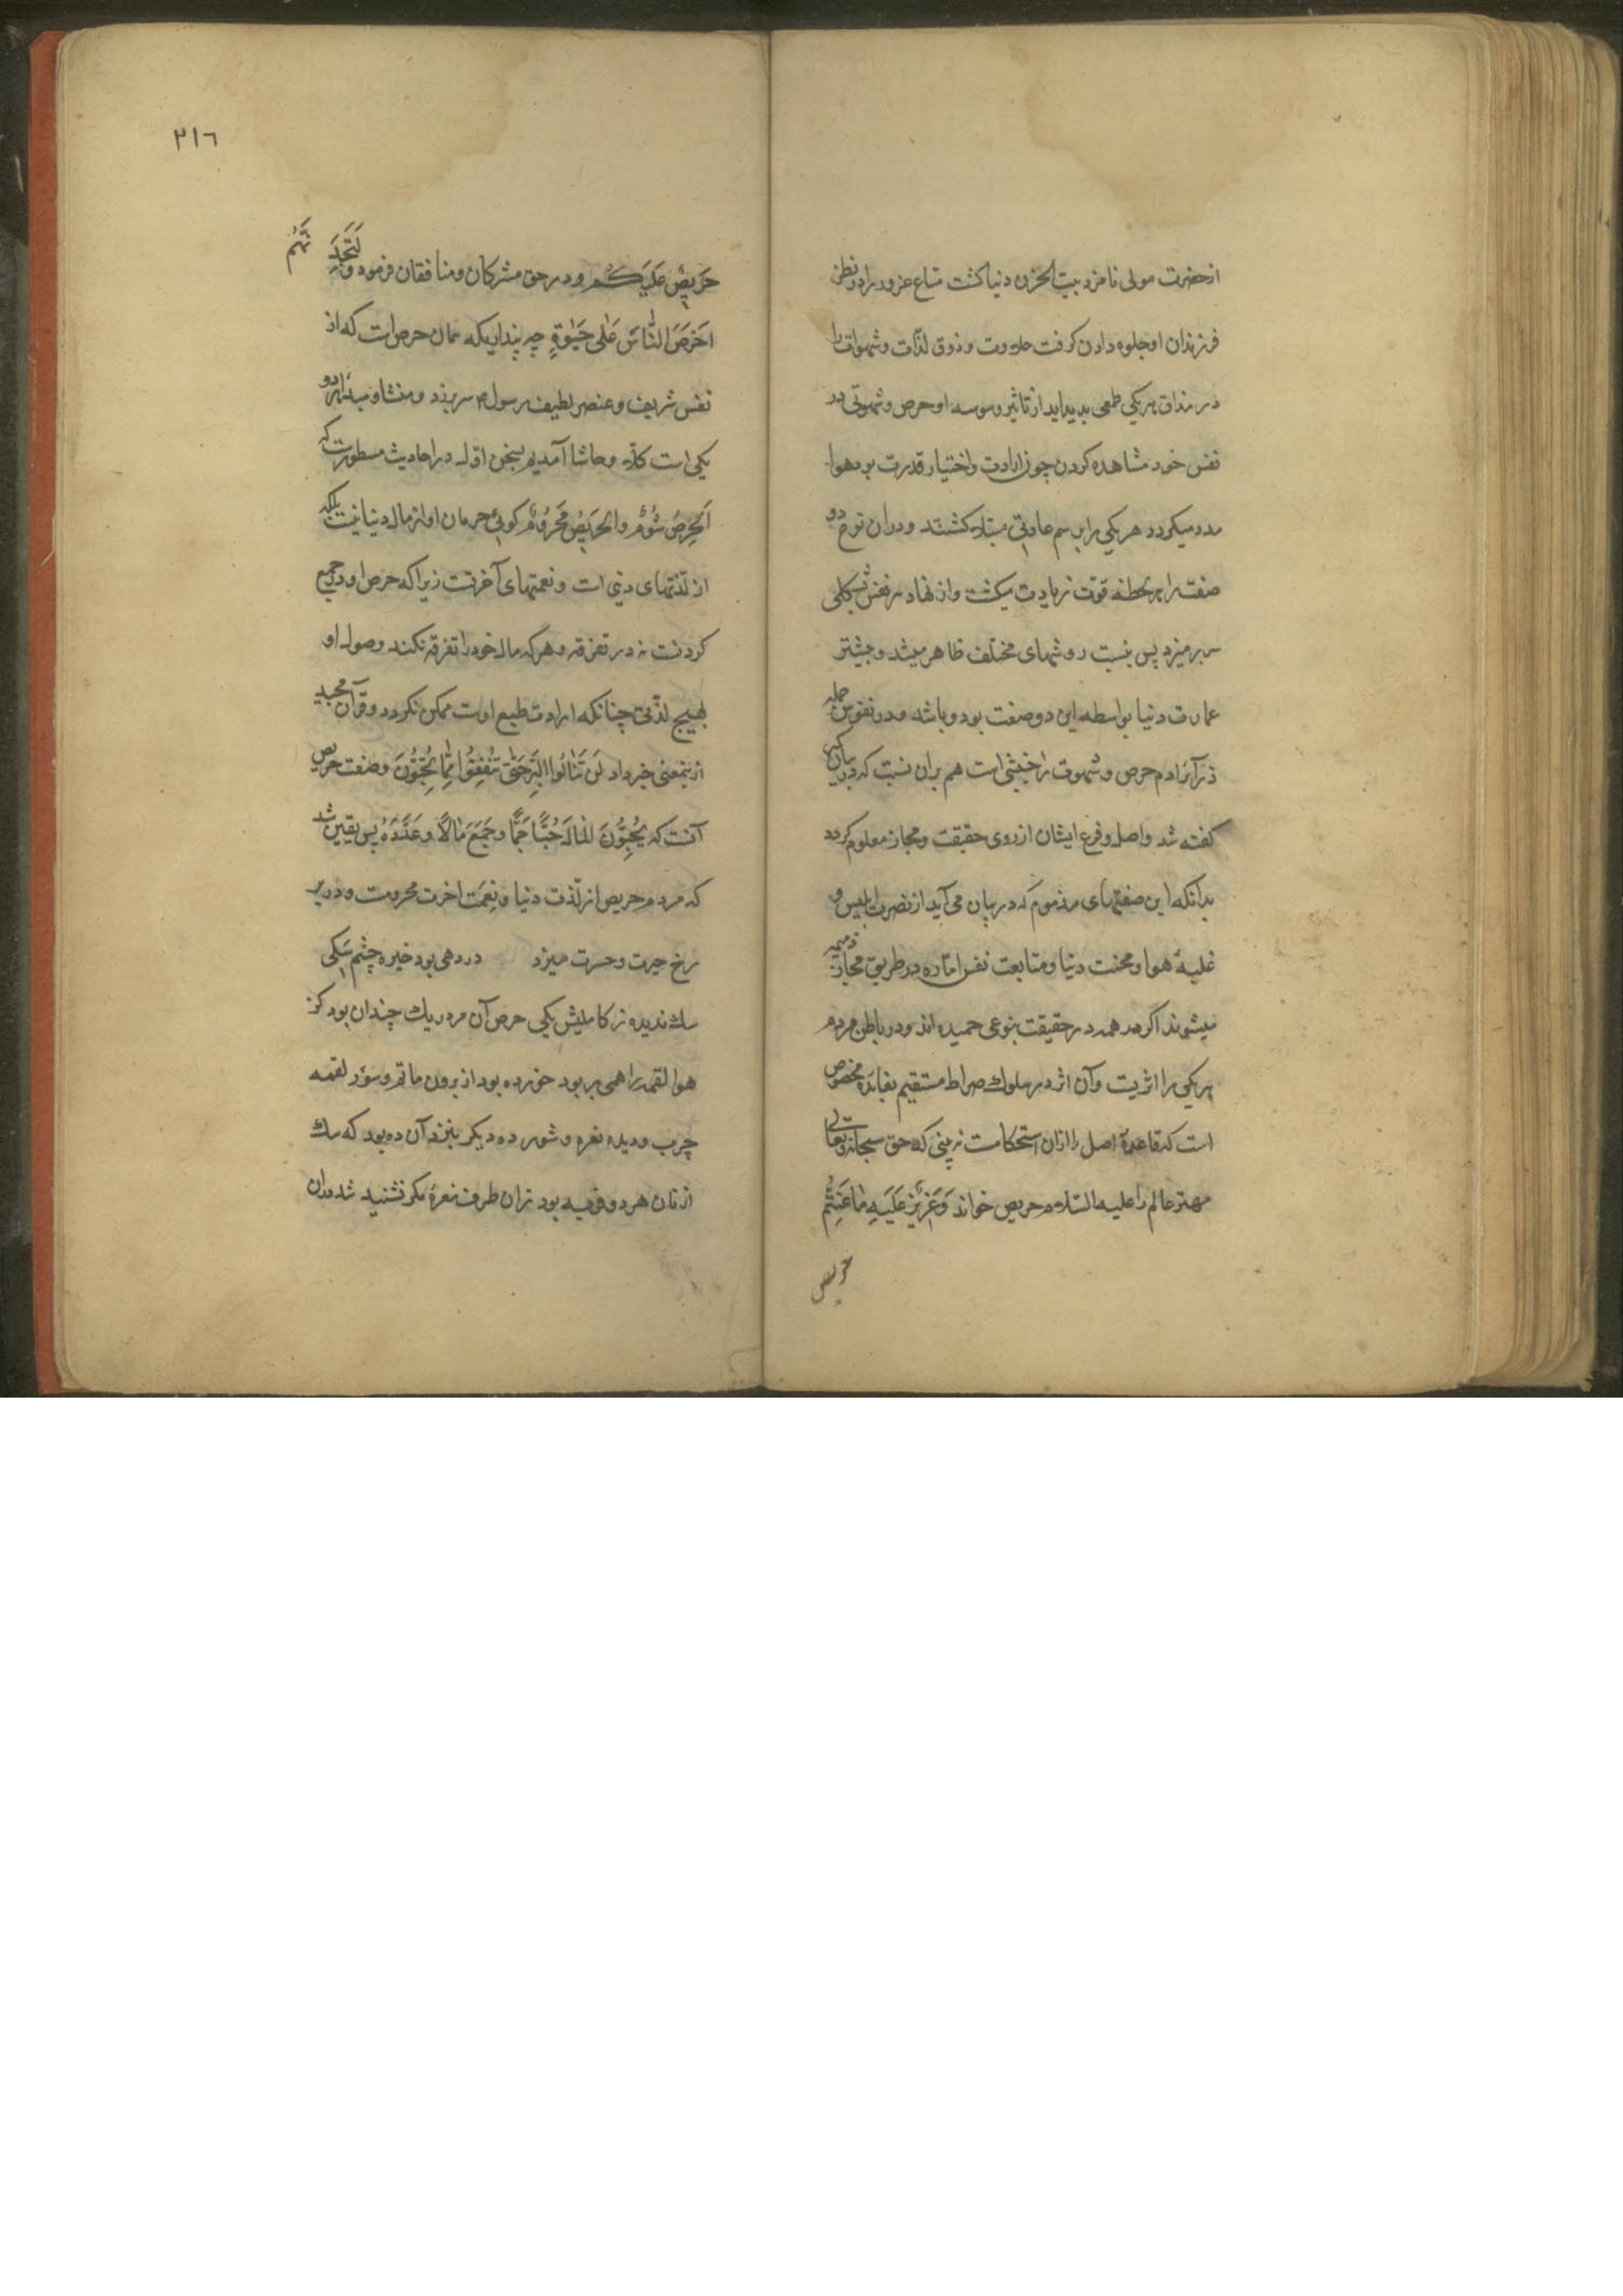 از حضرت مولی نامزد بیت الحزن دنیا کشت متاع غرور را در نظر
فرزندان او جلوه دادن کرفت حلاوت و ذوق لذات و شهوات را
در مذاق هریکی طمعی بدید اید از تاثیر وسوسه او حرص و شهوتی در
نفس خود مشاهده کردن چون ارادت و اختیار قدرت بر هوا
مدد میکردد هریکی را برسم عادتی مبتلا کشتند و دران نوع دو
صفت را هر لحظه قوت زیادت میکشت و از نهاد هر نفس بشکلی
سر بر میزد پس بنسبت روشهای مختلف ظاهر میشد و بیشتر
عمارت دنیا بواسطه این دو صفت بود و باشد و در نفوس جمله
حرص و شهوت را جنبشی است هم بران نسبت که در بیان کبر
کفته شد و اصل و فرع ایشان از روی حقیقت و مجاز معلوم کردد
بدانکه این صفتهای مذموم که در بیان می آید از نصرت ابلیس و
غلبهٔ هوا و محنت دنیا و متابعت نفس اماره در طریق مجاز ذمیمه
میشوند اکرنه همه در حقیقت بنوعی حمیده اند و در باطن مردم
هریکی را اثریست و آن اثر در سلوک صراط مستقیم بفایده مخصوص
است که قاعدهٔ اصل را ازان استحکامست نه بینی که حق سبحانه و تعالی
مهتر عالم را علیه السلام حریص خواند وَعَزِیزٌ عَلَیهِ مَا عَنِتُّم
حریص
٣١٦
حَرِیصٌ عَلَیکُم و در حق مشرکان و منافقان فرمود و لَتَجِدَ نَّهُم
اَحْرَصَ النَّاسَ عَلی حَیٰوةٍ چه پنداریکه همان حرص است که از
نفس شریف و عنصر لطیف رسول م سر بر زد و منشا و مبدا هر دو
یکی است کلا و حاشا آمدیم بسخن اول در احادیث مسطورست که
اَلحِرصُ شُؤْمٌ و الحَرِیصُ مَحرُومٌ کوئی حرمان او از مال دنیا نیست بلکه
از لذتهای دینی است و نعمتهای آخرتست زیرا که حرص او در جمع
کردنست نه در تفرقه و هرکه مال خود را تفرقه نکند وصول او
بهیچ لذتی چنانکه ارادت طبع اوست ممکن نکردد و قرآن مجید
ازینمعنی خبر داد لَن تَنَالُوا البِرَّ حَتّٰی تُنْفِقُوا مِمَّا تُحِبُّونَ و صفت حریص
آنست که یُحِبُّونَ المَالَ حُبًّا جَمًّا و جَمَعَ مَالاً وَ عَدَّدَهُ پس یقین شد
که مردم حریص از لذت دنیا و نعمت اخرت محرومست و در بر
رخ حیرت و حسرت میزد در دهی بود خیره چشم سکی
سک ندیده ز کاملیش یکی حرص آن مرده ریک چندان بود کز
هوا لقمه را همی بربود خورده بود از برون ماتم و سور لقمه
چرب و دیده نغره و شور ده دیکر بنزد آن ده بود که سک
از نان هر دو فربه بود زان طرف نعرهٔ مکر نشنید شد بدان